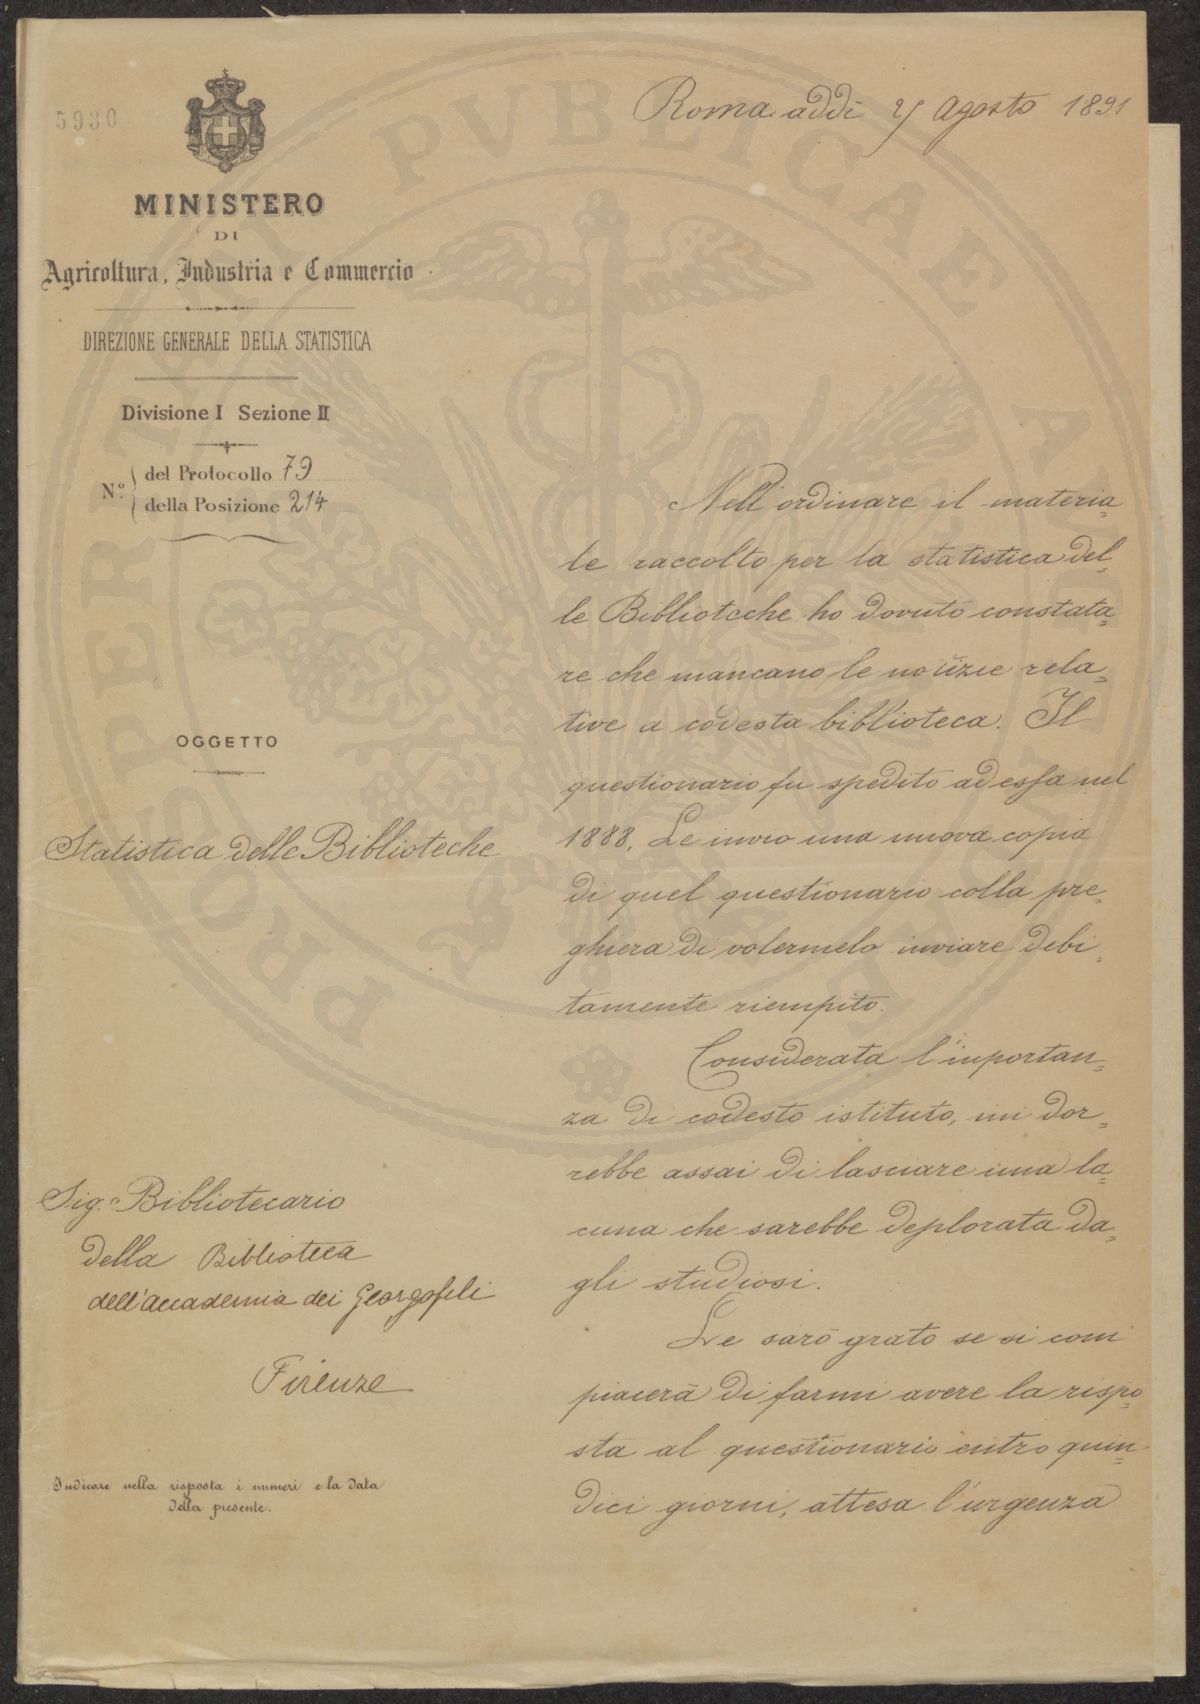 5930
MINISTERO
DI
Agricoltura, Industria e Commercio
DIREZIONE GENERALE DELLA STATISTICA
Divisione I Sezione II
N.º del Protocollo 79
della Posizione 214
OGGETTO
Statistica delle Biblioteche
Sig. Bibliotecario
della Biblioteca
dell'Accademia dei Georgofili
Firenze
Indicare nella risposta i numeri e la data
della presente.
Roma addì Agosto 1891
Nell'ordinare il materia=
le raccolto per la statistica del=
le Biblioteche ho dovuto constata=
re che mancano le notizie rela=
tive a codesta biblioteca. Il
questionario fu spedito ad essa nel
1888. Le invio una nuova copia
di quel questionario colla pre=
ghiera di volermelo inviare debi=
tamente riempito.
Considerata l'inportan=
za di codesto istituto, mi dor=
rebbe assai di lasciare una la=
cuna che sarebbe deplorata da=
gli studiosi.
Le sarò grato se si com
piacerà di farmi avere la rispo=
sta al questionario entro quin=
dici giorni, attesa l'urgenza
PROSPERITATI PVBLICAE AVGENDAE